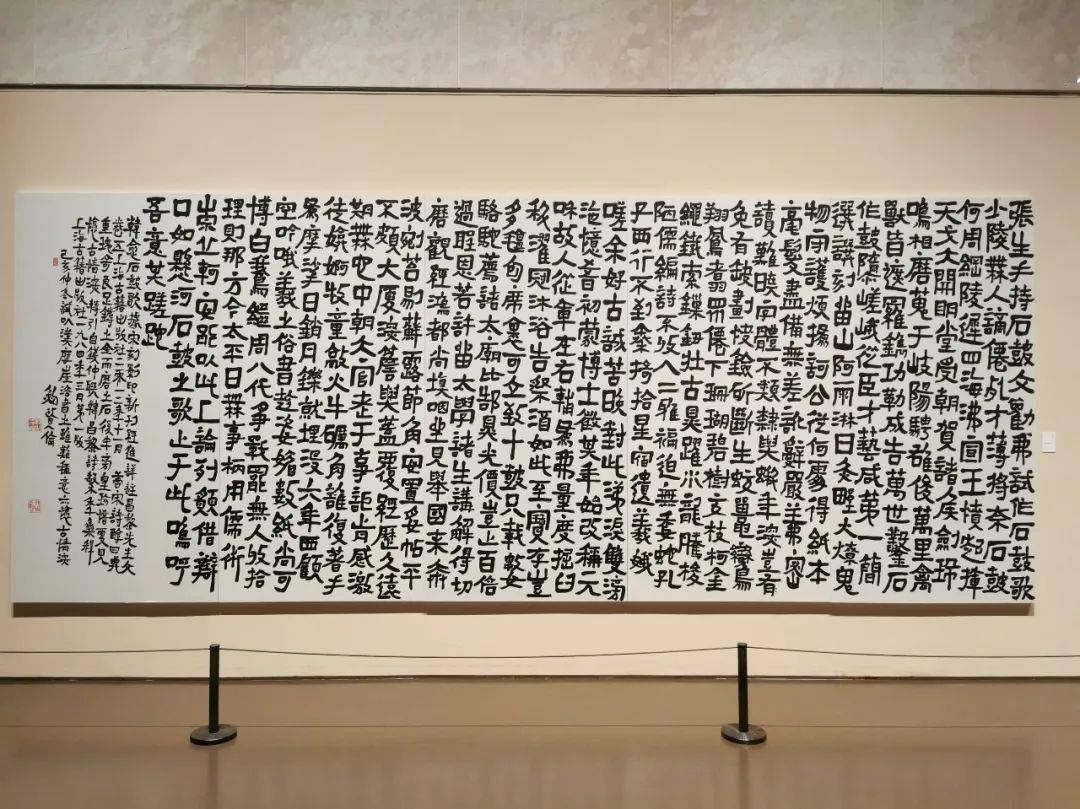 張生手持石鼓文勸我試作石鼓歌
少陵無人謫僊死才薄將奈石鼓
何周綱陵遲四海沸宣王憤起揮
天戈大開明堂受朝賀諸侯劍珮
鳴相磨蒐于岐陽騁雄俊萬里禽
獸皆遮羅鐫功勒成告萬世鑿石
作鼓隳嵯峨從臣才藝咸第一簡
選譔刻留山阿雨淋日炙野火燎鬼
物守護煩撝訶公從何處得紙本
毫髮盡備無差訛辭嚴義密
讀難曉字體不類隸與蝌年深豈有
免有缺畫快劍斫斷生蛟鼉鸞鳥
翔鳳翥眾僊下珊瑚碧樹交枝柯金
繩鐵索鎖鈕壯古鼎躍水龍騰梭
陋儒編詩不收入二雅褊迫無委蛇孔
子西行不到秦掎拾星宿遺羲娥
嗟余好古誠苦晚對此涕淚雙滂
沱憶昔初蒙博士徵其年始改稱元
咊故人從軍在右輔為我量度掘臼
科濯冠沐浴告祭酒如此至寶存豈
多氈包席裹可立致十鼓只載數
駱駝薦諸太廟比郜鼎光價豈止百倍
過聖恩若許留太學諸生講解得切
磨觀經鴻都尚填咽坐見舉國來奔
波剜苔剔蘚露節角安置妥帖平
不頗大廈深簷與蓋覆經歷久遠
期無佗中朝大官老于事詎肯感激
徒媕婀牧童敲火牛礪角誰復著手
為摩挲日銷月鑠就埋沒六年西顧
空吟哦羲之俗書趁姿媚數紙尚可
博白鵝繼周八代爭戰罷無人收拾
理則那方今太平日無事柄用儒術
崇丘軻安能以此上論列願借辯
口如懸河石鼓之歌止于此嗚呼
吾意其蹉跎
韓愈石鼓歌據宋刻影印新刊經進詳註昌黎先生文